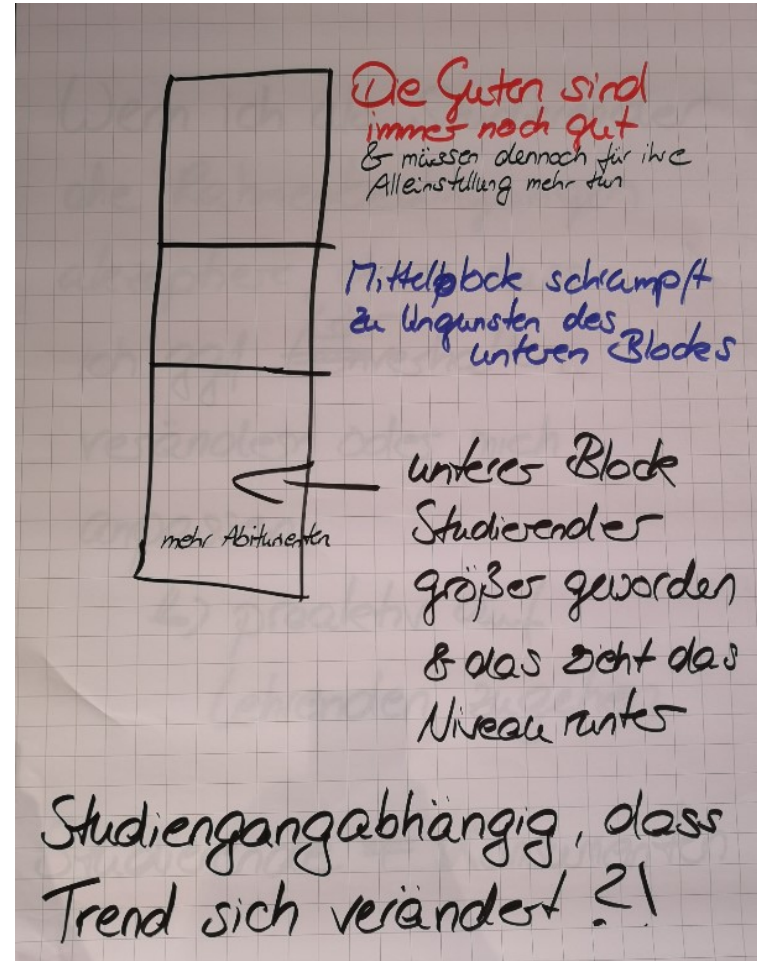 Die Guten sind
immer noch gut
& müssen dennoch für ihre
Alleinstellung mehr tun
Mittelblock schrumpft
zu Ungunsten des
unteren Blockes
unterer Block
Studierender
größer geworden
& das zieht das
Niveau runter
mehr Abiturienten
Studiengangabhängig, dass
Trend sich verändert ?!